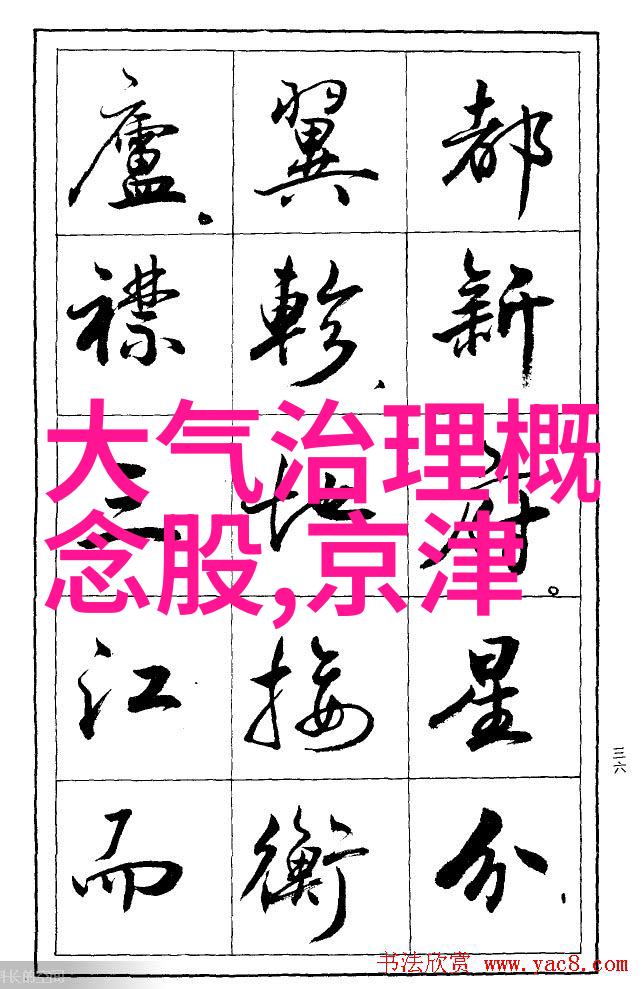 都新府。星分、
翼軫、地接衡
廬。襟三江而
大气治理概
念股,京津
三六
书法欣赏 www.yac8.com
长的空间